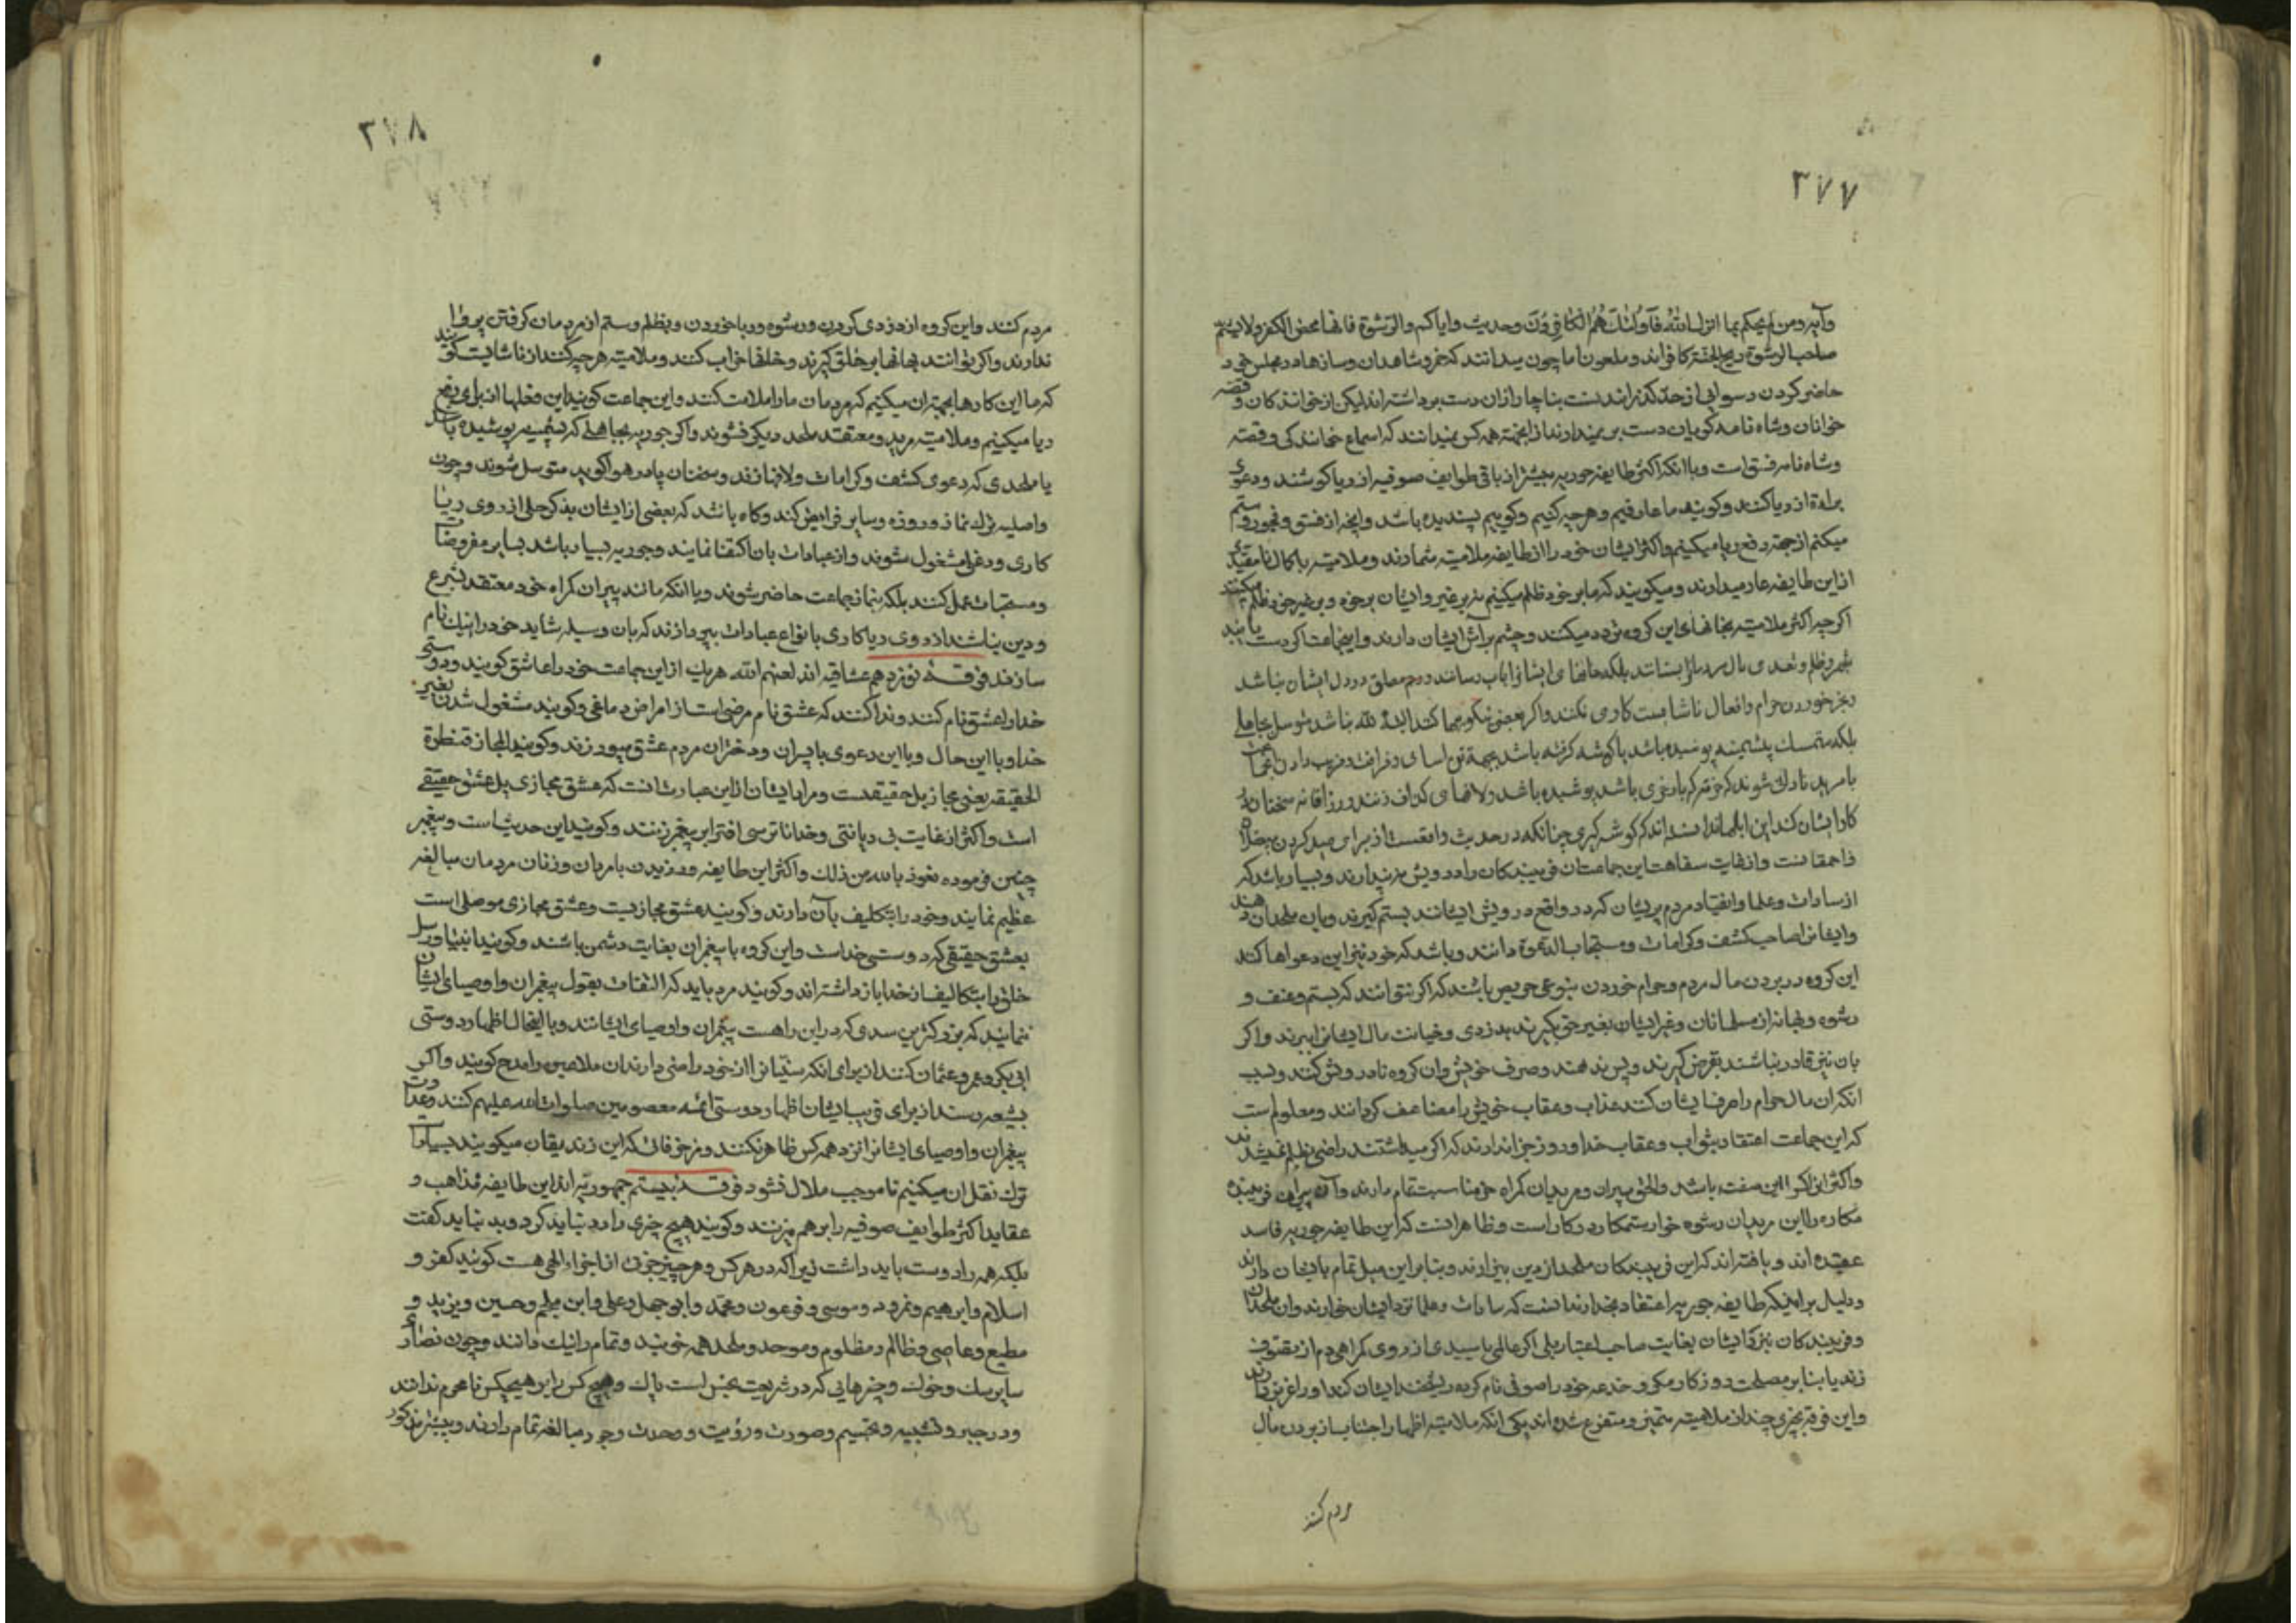 ۳۷۷
وآیه ومن لم یحکم بما انزل الله فاولئك هم الکافرون وحدیث وایاکم والرشوة فانها محض الکفر ولا یشم
صاحب الرشوة ریح الجنة کافراند وملعون اما چون میدانند که خمر وشاهدان وسازها در مجلس خود
حاضر کردن رسوایی از حد گذرانیدنست بناچار ازان دست برداشته اند لیکن از خوانندکان وقصه
خوانان وشاه نامه کویان دست بر نمیدارند از انجهة همه کس نمیدانند که اسماع خوانندکی وقصه
وشاه نامه فسق است وباانکه اکثر طایفه جوریه بیشتر از باقی طوایف صوفیه از ریا کوشند ودعوی
براءة از ریا کنند وکویند ما عارفیم وهرچه کنیم وکوییم پسندیده باشد وانچه از فسق وفجور وستم
میکنم از جهة دفع ریا میکنیم واکثر ایشان خود را از طایفه ملامتیه شمارند وملامتیه باکمال نامقیدی
ازین طایفه عار میدارند ومیکویند که ما بر خود ظلم میکنیم نه بر غیر وایشان بر خود وبر غیر خود ظلم میکنند
اکرچه اکثر ملامتیه بخانهای این کروه تردد میکنند وچشم بر آش ایشان دارند واینجماعت اکر دست یابند
بقهر وظلم وتعدی مال مردم را بستانند بلکه خانهای ایشانرا باب رسانند ورحم مطلق در دل ایشان نباشد
وبجز خوردن حرام وافعال ناشایست کاری نکنند واکر بعضی نیکوییها کنند لله نباشد متوسل بجاهلی
بلکه متمسك پشمینه پوشیده باشد یا کوشه کرفته باشد بجهة
یا مرید نادانی شوند که باشد پوشیده باشد ولافهای کزاف زند ورزاقانه سخنان
کار ایشان کند این ابلهان ندانسته اند که کوشه کیری چنانکه در حدیث واقعست از برای صید کردن جهلا
واحمقانست وازغایت سفاهت این جماعتان فریبندکان را درویش پندارند وبسیار باشد که
از سادات وعلما واتقیاء مردم پریشان که در واقع درویش ایشانند بستم کیرند وبان ملحدان دهند
وایشانرا صاحب کشف وکرامات ومستجاب الدعوة دانند وباشد که خود نیز این دعواها کند
این کروه در بردن مال مردم وحرام خوردن بنوعی حریص باشند که اکر نتوانند که بستم وعنف و
رشوه وبهانه از مسلمانان وغیر ایشان بغیر حق چیزی کیرند بدزدی وخیانت مال ایشانرا ببرند واکر
بان نیز قادر نباشند بقرض کیرند وپس ندهند وصرف خویش وان کروه نادرویش کنند وبسبب
انکه ان مال حرام را صرف ایشان کنند عذاب وعقاب خویش را مضاعف کردانند ومعلوم است
که این جماعت اعتقاد بثواب وعقاب خدا وروز جزا ندارند که اکر میداشتند راضی بظلم نمیشدند
واکثر باین صفت باشد والحق پیران ومریدان کمراه خود مناسبت تمام دارند وآن پیران فریبنده
مکاره را این مریدان رشوه خوار ستمکار در کار است وظاهر انست که این طایفه جوریه فاسد
عقیده اند ویافته اند که این فریبندکان ملحد از دین بیزارند وبنابر این میل تمام بایشان دارند
ودلیل بر اینکه طایفه جوریه اعتقاد بخدا ندارند انست که سادات وعلما نزد ایشان خوارند وان ملحدان
وفریبندکان نزد ایشان بغایت صاحب اعتبار بلی اکر عالمی یا سیدی از روی کمراهی دم از تصوف
زند یا بنابر مصلحت روزکار مکر وخدعه خود را صوفی نام کرده ریشخند ایشان کند او را عزیز دارند
واین فرقه بچیزی چند از ملامتیه متمیز ومتفرع شده اند یکی انکه ملامتیه اظهار اجتناب از بردن مال
مردم کنند
۳۷۸
مردم کنند واین کروه از دزدی کردن ورشوه وربا خوردن وبظلم وستم از مردمان کرفتن پروا
ندارند واکر بتوانند بهانها بر خلق کیرند وخلقها خراب کنند وملامتیه هر چه کنند از ناشایست کویند
که ما این کارها بجهة ان میکنیم که مردمان ما را ملامت کنند واین جماعت کویند این فعلها از برای دفع
ریا میکنیم وملامتیه مرید ومعتقد ملحد دیکر نشوند واکر جوریه بجاهلی که پشمینه پوشیده باشد
یا ملحدی که دعوی کشف وکرامات ولافها زند وسخنان پادر هوا کوید متوسل شوند وچون
واصلیه ترك نماز وروزه وسایر فرایض کند وکاه باشد که بعضی از ایشان بذکر جلی از روی ریا
کاری ودغل مشغول شوند واز عبادات بان اکتفا نمایند وجوریه بسیار باشد بسایر مفروضات
ومستحبات عمل کنند بلکه بنماز جماعت حاضر شوند وباانکه مانند پیران کمراه خود معتقد بشرع
ودین نباشند از روی ریا کاری بانواع عبادات بپردازند که بان وسیله شاید خود را نیك نام
سازند فرقه نوزدهم عشاقیه اند لعنهم الله هریك از این جماعت خود را عاشق کویند ودوستی
خدا را عشق نام کنند وندا کنند که عشق نام مرضی است از امراض دماغی وکویند مشغول شدن بغیر
خدا وبا این حال وبا این دعوی با پسران ودختران مردم عشق میورزند وکویند المجاز قنطرة
الحقیقه یعنی مجاز پل حقیقتست ومراد ایشان ازین عبارت انست که عشق مجازی پل عشق حقیقی
است واکثر از غایت بی دیانتی وخدا ناترسی افترا بر پیغمبر زنند وکویند این حدیث است وپیغمبر
چنین فرموده نعوذ بالله من ذلك واکثر این طایفه ورزیدن با مردان وزنان مردمان مبالغه
عظیم نمایند وخود را بتکلیف بآن دارند وکویند عشق مجازیست وعشق مجازی موصل است
بعشق حقیقی که دوستی خداست واین کروه با پیغمبران بغایت دشمن باشند وکویند انبیا ورسل
خلق را بتکالیف از خدا باز داشته اند وکویند مرد باید که التفات بقول پیغمبران واوصیای ایشان
ننماید که بزرکترین سدی که در این راهست پیغمبران واوصیای ایشانند وبااینحال اظهار دوستی
ابی بکر وعمر وعثمان کنند از برای انکه سنیانرا از خود راضی دارند ان ملاعین را مدح کویند واکر
بشیعه رسند از برای فریب ایشان اظهار دوستی ائمه معصومین صلوات الله علیهم کنند وعداوت
پیغمبران واوصیای ایشانرا نزد همه کس ظاهر نکنند ومزخرفات که این زندیقان میکویند بسیار است
ترك نقل ان میکنیم تا موجب ملال نشود فرقه بیستم جمهوریه اند این طایفه مذاهب و
عقاید اکثر طوایف صوفیه را بر هم میزنند وکویند هیچ چیزی را رد نباید کرد وبد نباید کفت
بلکه همه را دوست باید داشت زیرا که در هر کس وهر چیز جزوی از اجزاء الهی هست کویند کفر و
اسلام وابرهیم ونمرود وموسی وفرعون ومحمد وابوجهل وعلی وابن ملجم وحسین ویزید و
مطیع وعاصی وظالم ومظلوم وموحد وملحد همه خوبند وتمام را نیك دانند وچون نصاری
سایر سك وخوك وچیزهایی که در شریعت نجس است پاك وهیچ کس را بر هیچکس نامحرم ندانند
ودر جبر وتشبیه وتجسیم وصورت ورؤیت ووحدت وجود مبالغه تمام دارند